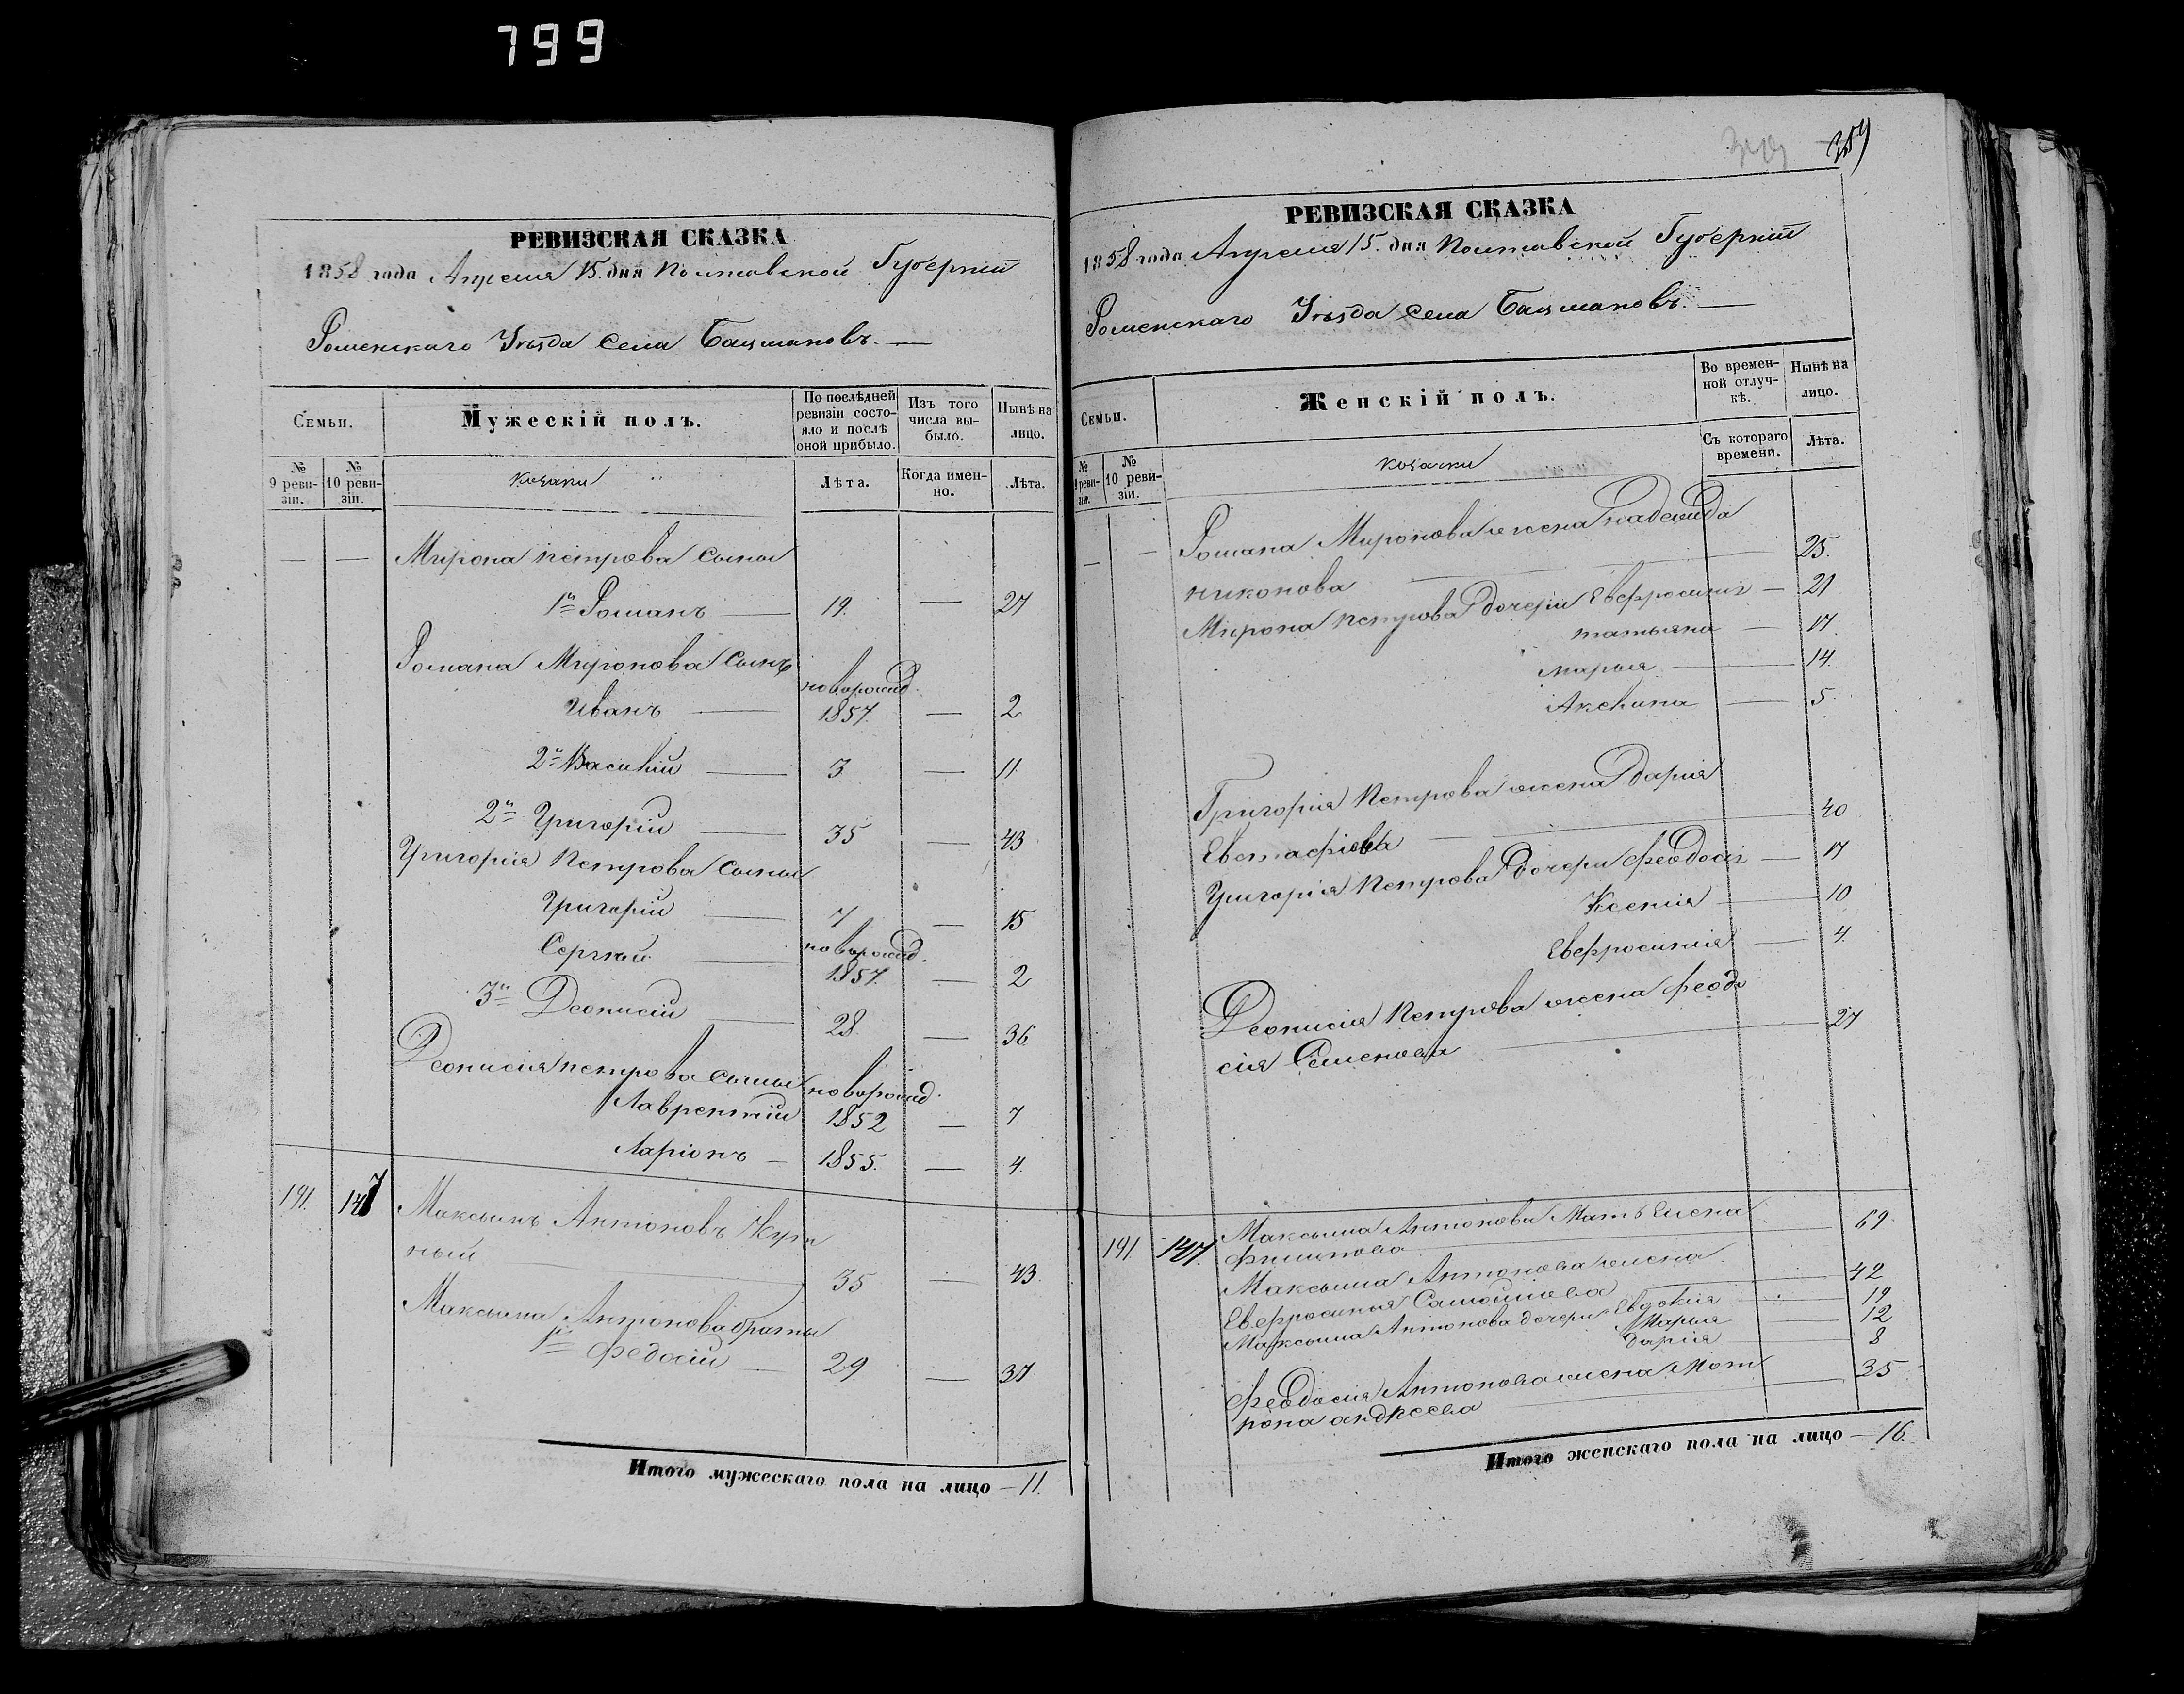 799
РЕВИЗСКАЯ СКАЗКА
1858 года Апреля 15. дня Полтавской Губернiи
Роменскаго Уѣзда Села Бацмановъ.
Семьи.
Мужескiй полъ.
По послѣдней ревизiи состояло и послѣ оной прибыло.
Изъ того числа выбыло.
Нынѣ на лицо.
№ 9 ревизiи.
№ 10 ревизiи.
козаки
Лѣта.
Когда именно.
Лѣта.
— — Мирона Петрова сыны
1й Романъ — 19. — 27
Романа Миронова сынъ
новорожд.
Иванъ — 1857. — 2
2й Василiй — 3 — 11
2й Григорiй — 35 — 43
Григорiя Петрова сыны
Григорiй — 7 — 15
Сергѣй — новорожд.
1857. — 2
3й Деонисiй — 28 — 36
Деонисiя Петрова сыны новорожд.
Лаврентiй 1852 — 7
Ларiонъ — 1855. — 4.
191. 147 Максымъ Антоновъ
ный — 35 — 43.
Максыма Антонова браты
1й Федосiй — 29 — 37
Итого мужескаго пола на лицо — 11.
359
РЕВИЗСКАЯ СКАЗКА
1858 года Апреля 15. дня Полтавской Губернiи
Роменскаго Уѣзда Села Бацмановъ. —
Семьи.
Женскiй полъ.
Во временной отлучкѣ.
Нынѣ на лицо.
№ 9 ревизiи.
№ 10 ревизiи.
козачки
Съ котораго времени.
Лѣта.
— — Романа Миронова жена Надежда
Никонова — 25.
Мирона Петрова дочери Евфросинiя — 21
Татьяна — 17.
Марья — 14.
Аксенiа — 5
Григорiя Петрова жена Дарiя
Евстафiева — 40
Григорiя Петрова дочери Феодосiя — 17
Ксенiя — 10
Евфросинiя — 4.
Деонисiя Петрова жена Феодо
сiя Семенова — 27
191. 147. Максыма Антонова мать Елена
Филипова — 69.
Максыма Антонова жена
Евфросинья Самойлова — 42
Максыма Антонова дочери Евдокiя — 19
Марья — 12
Дарiя — 8
Феодосiя Антонова жена Мот
рона Андреева — 35
Итого женскаго пола на лицо — 16.